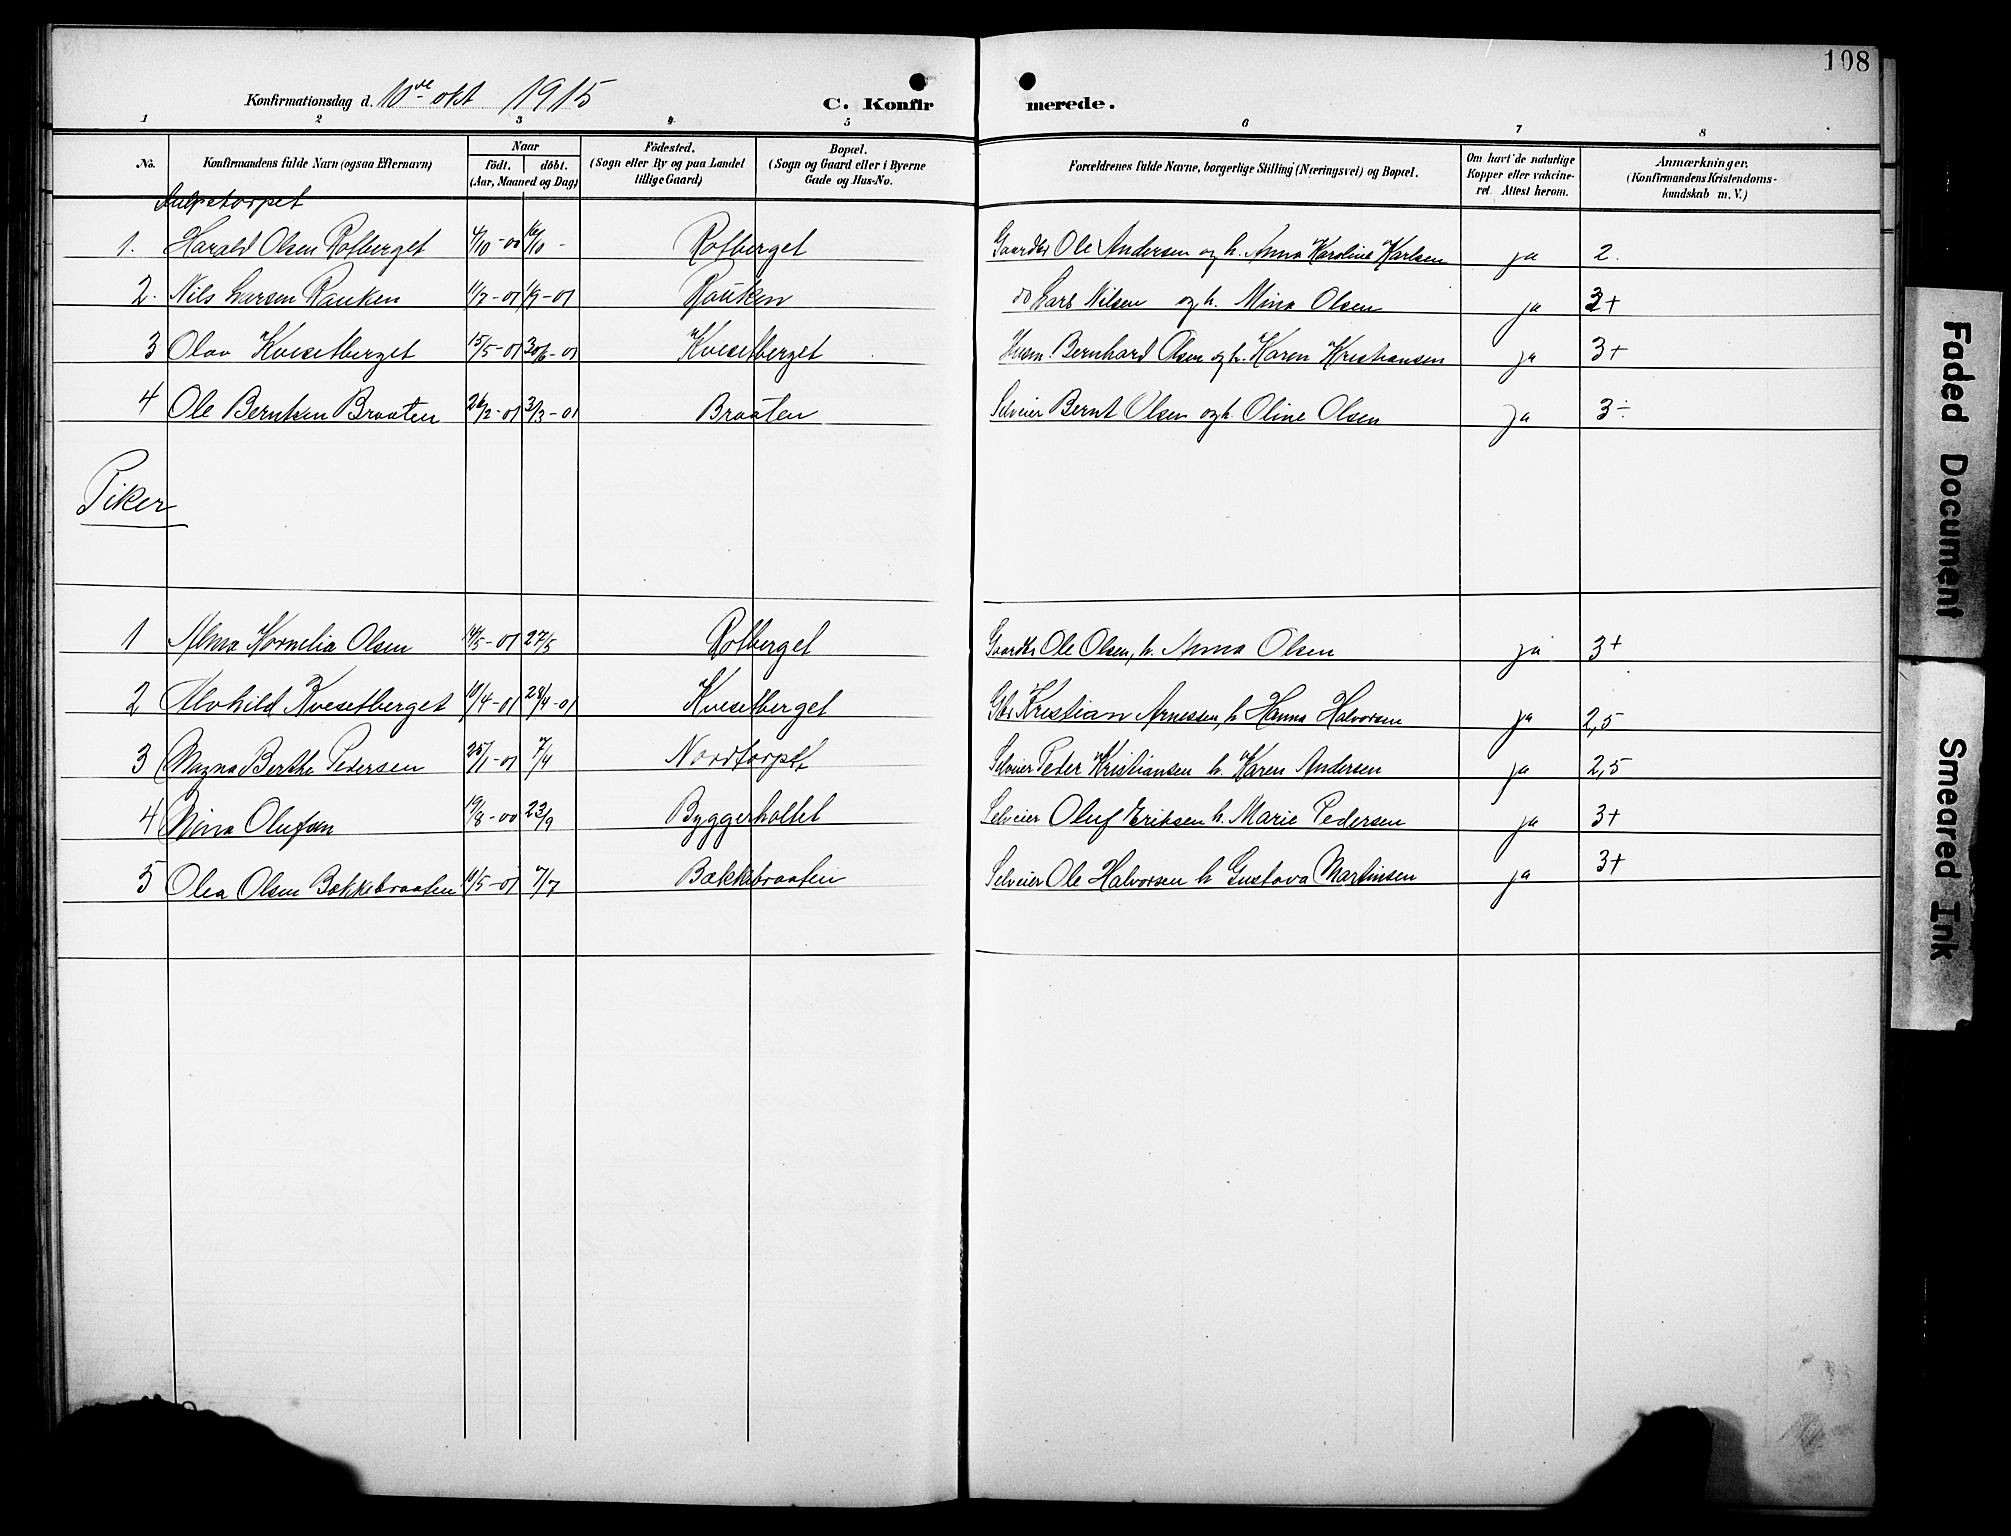 108
Konfirmationsdag d. 10de okt 1915 C. Konfirmerede.
1 2 3 4 5 6 7 8
No. Konfirmandens fulde Navn (ogsaa Efternavn) Naar født. døbt. (Aar, Maaned og Dag) Fødested. (Sogn eller By og paa Landet tillige Gaard) Bopæl. (Sogn og Gaard eller i Byerne Gade og Hus-No. Forældrenes fulde Navne, borgerlige Stilling (Næringsvei) og Bopæl. Om havt de naturlige Kopper eller vakcineret. Attest herom. Anmærkninger. (Konfirmandens Kristendomskundskab m. V.)
1. Harald Olsen Rotberget 4/10-00 16/10 - Rotberget Gaardbr Ole Andersen og h. Anna Karoline Karlsen ja 2.
2. Nils Larsen Rauken 11/7-01 1/9-01 Rauken do Lars Nilsen og h. Mina Olsen ja 3+
3 Olav Kvesetberget 15/5-01 30/6-01 Kvesetberget Husm. Bernhard Olsen og h. Karen Kristiansen ja 3+
4 Ole Berntsen Braaten 26/2-01 3/3-01 Braaten Selveier Bernt Olsen og h. Oline Olsen ja 3÷
Piker
1 Alma Kornelia Olsen 14/5-01 27/5 Rotberget Gaardbr Ole Olsen, h. Anna Olsen ja 3+
2 Alvhild Kvesetberget 10/4-01 28/4-01 Kvesetberget Gbr Kristian Arnesen, h Hanna Halvorsen ja 2,5
3 Magna Berthe Pedersen 25/1-01 7/4 Nordtorpet Selveier Peder Kristiansen h. Karen Andersen ja 2,5
4 Nina Olufsen 19/8-00 23/9 Byggerholtet Selveier Oluf Eriksen h. Marie Pedersen ja 3+
5 Olea Olsen Bækkebraaten 10/5-01 7/7 Bækkebraaten Selveier Ole Halvorsen h Gustava Martinsen ja 3+
Faded Document
Smeared Ink